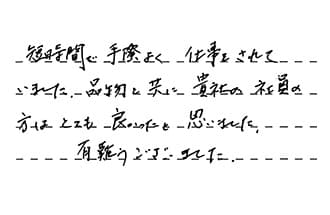 短時間で手際よく仕事をされて
いました。品物と共に貴社の社員の
方はとても良かったと思いました。
有難うございました。